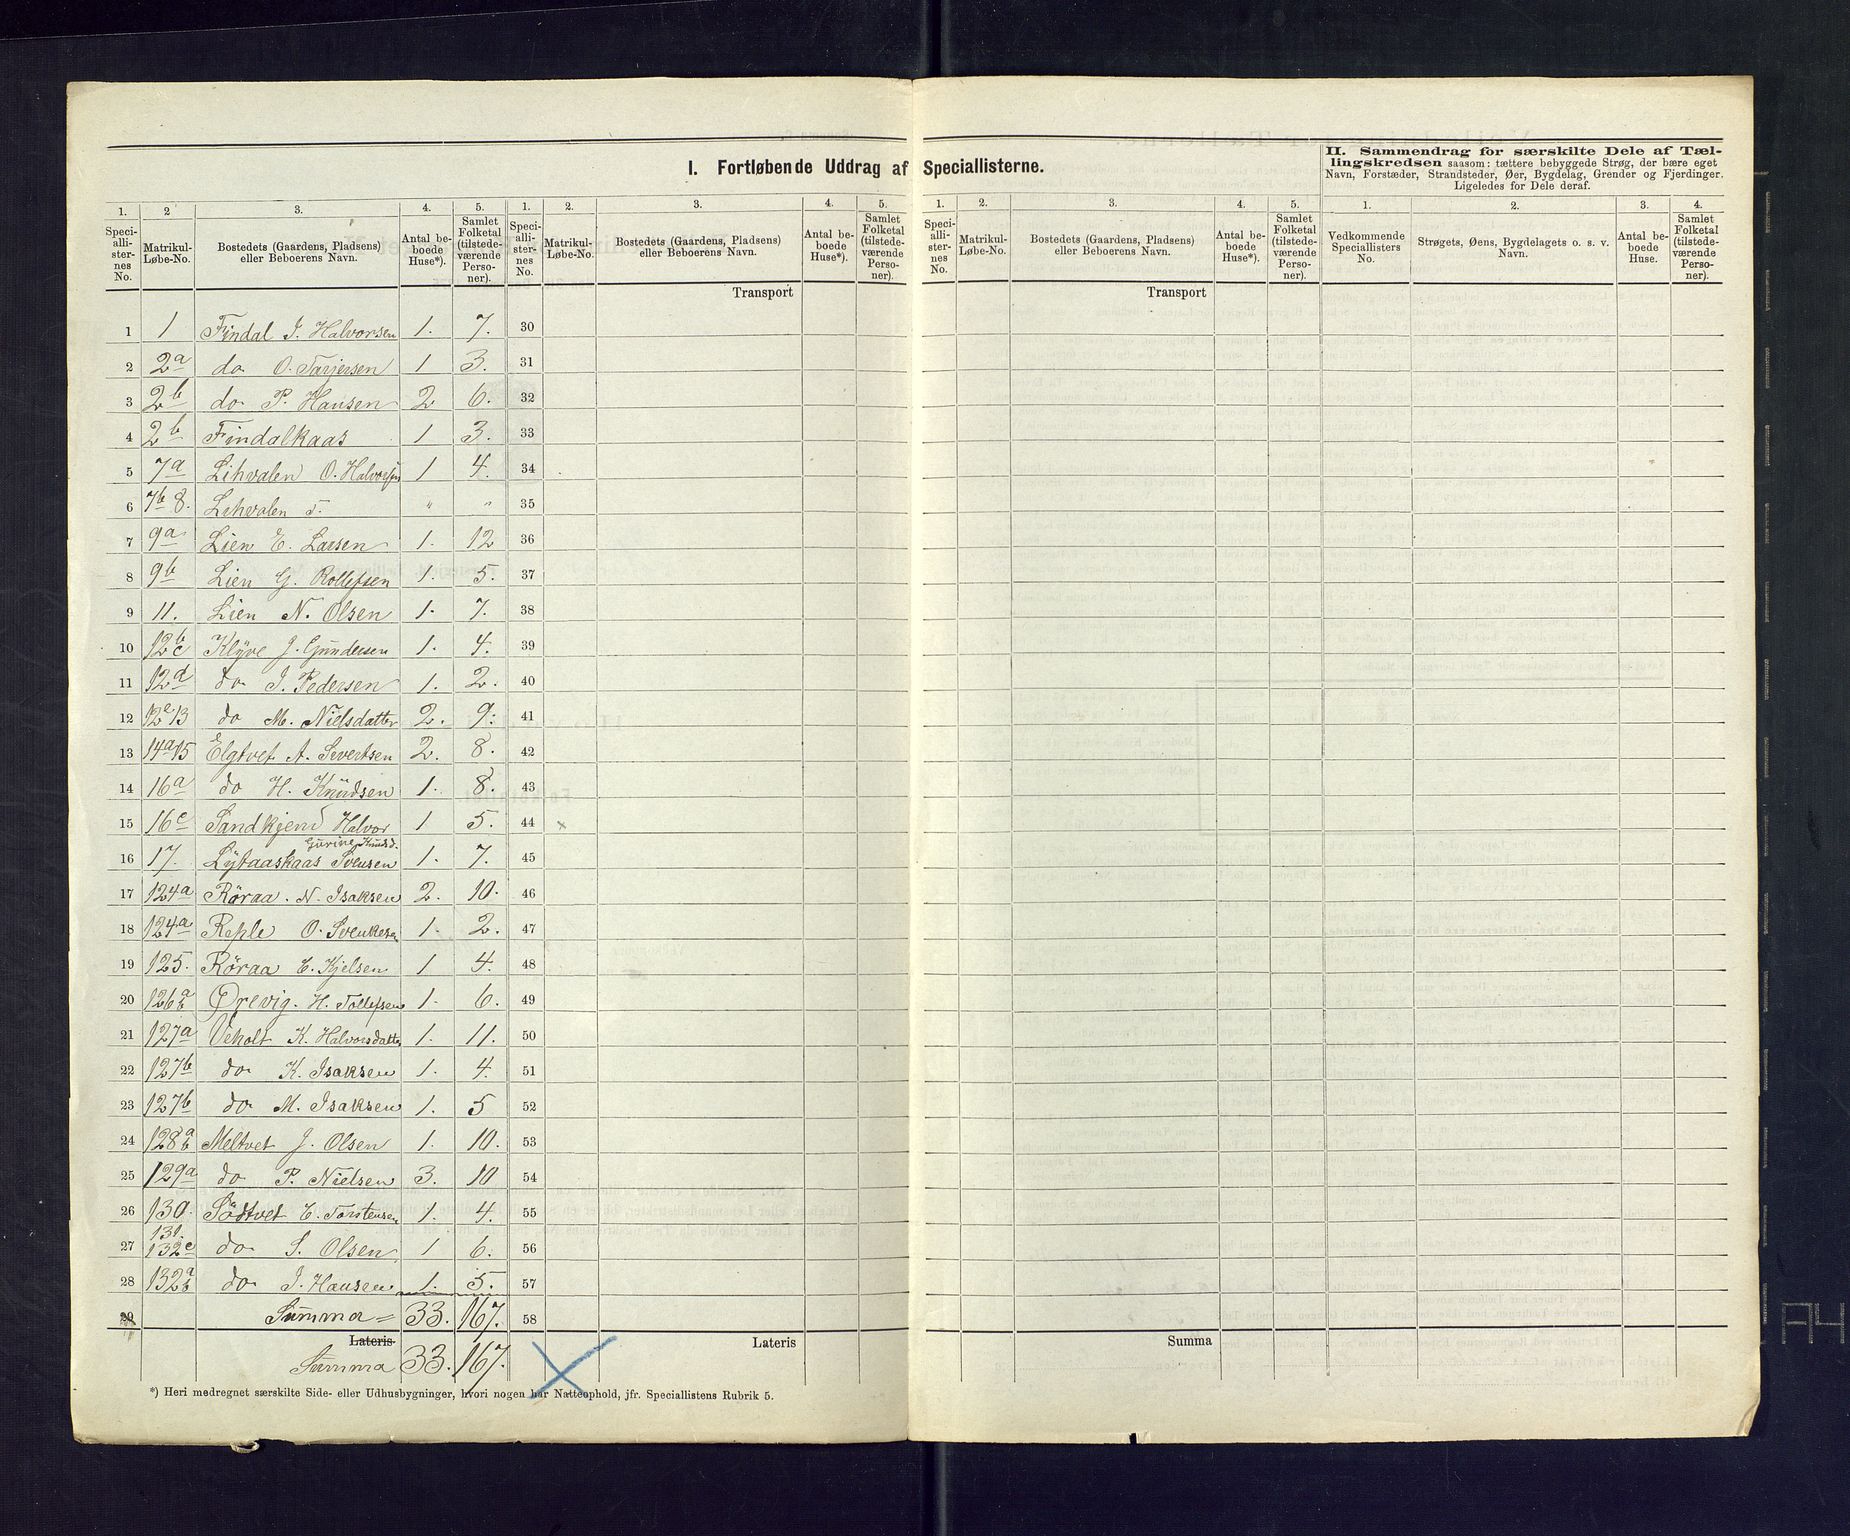 I. Fortløbende Uddrag af Speciallisterne.
II. Sammendrag for særskilte Dele af Tæl-
lingskredsen saasom: tættere bebyggede Strøg, der bære eget
Navn, Forstæder, Strandsteder, Øer, Bygdelag, Grender og Fjerdinger.
Ligeledes for Dele deraf.
1. 2 3. 4. 5. 1. 2. 3. 4. 5. 1. 2. 3. 4. 5. 1. 2. 3. 4.
Speci-alli-ster-nes No. Matrikul-Løbe-No. Bostedets (Gaardens, Pladsens) eller Beboerens Navn. Antal be-boede Huse*). Samlet Folketal (tilstede-værende Perso-ner).
Speci-alli-ster-nes No. Matrikul-Løbe-No. Bostedets (Gaardens, Pladsens) eller Beboerens Navn. Antal be-boede Huse*). Samlet Folketal (tilstede-værende Perso-ner).
Speci-alli-ster-nes No. Matrikul-Løbe-No. Bostedets (Gaardens, Pladsens) eller Beboerens Navn. Antal be-boede Huse*). Samlet Folketal (tilstede-værende Perso-ner).
Vedkommende Speciallisters No. Strøgets, Øens, Bygdelagets o. s. v. Navn. Antal be-boede Huse. Samlet Folketal (tilstede-værende Perso-ner).
Transport Transport
1 1 Findal J. Halvorsen 1. 7. 30
2 2a do O. Tarjersen 1 3. 31
3 2b do P. Hansen 2 6. 32
4 2b Findalkaas 1 3. 33
5 7a Lihvalen O. Halvorsen 1 4. 34
6 7b 8. Lihvalen " " 35
7 9a Lien E. Larsen 1. 12 36
8 9b Lien G. Rollefsen 1. 5. 37
9 11. Lien N. Olsen 1. 7. 38
10 12b c Klÿve J. Gundersen 1. 4. 39
11 12d do J. Pedersen 1. 2. 40
12 12e 13 do M. Nielsdatter 2. 9. 41
13 14a 15 Elgtvet A. Severtsen 2. 8. 42
14 16a do H. Knudsen 1. 8. 43
15 16c Sandkjend Halvor 1 5. 44
Gurine Knudsd.
16 17. Lÿbaaskaas Svensen 1. 7. 45
17 124a Röraa. N. Isaksen 2. 10. 46
18 124a O. 1. 2. 47
19 125. Röraa E. Kjelsen 1 4. 48
20 126a b Ørevig. H. Tollefsen 1. 6. 49
21 127a Veholt K. Halvorsdatter 1. 11. 50
22 127b do K. Isaksen 1. 4. 51
23 127b do M. Isaksen 1. 5 52
24 128a b Meltvet J. Olsen 1. 10. 53
25 129a do P. Nielsen 3. 10 54
26 130. Södtvet E. Torstensen 1. 4. 55
131.
27 132c do S. Olsen 1 6. 56
28 132a b do J. Hansen 1. 5. 57
29 Summa = 33. 167. 58
Lateris Lateris Summa
Summa 33. 167.
*) Heri medregnet særskilte Side- eller Udhusbygninger, hvori nogen har Natteophold, jfr. Speciallistens Rubrik 5.
A4